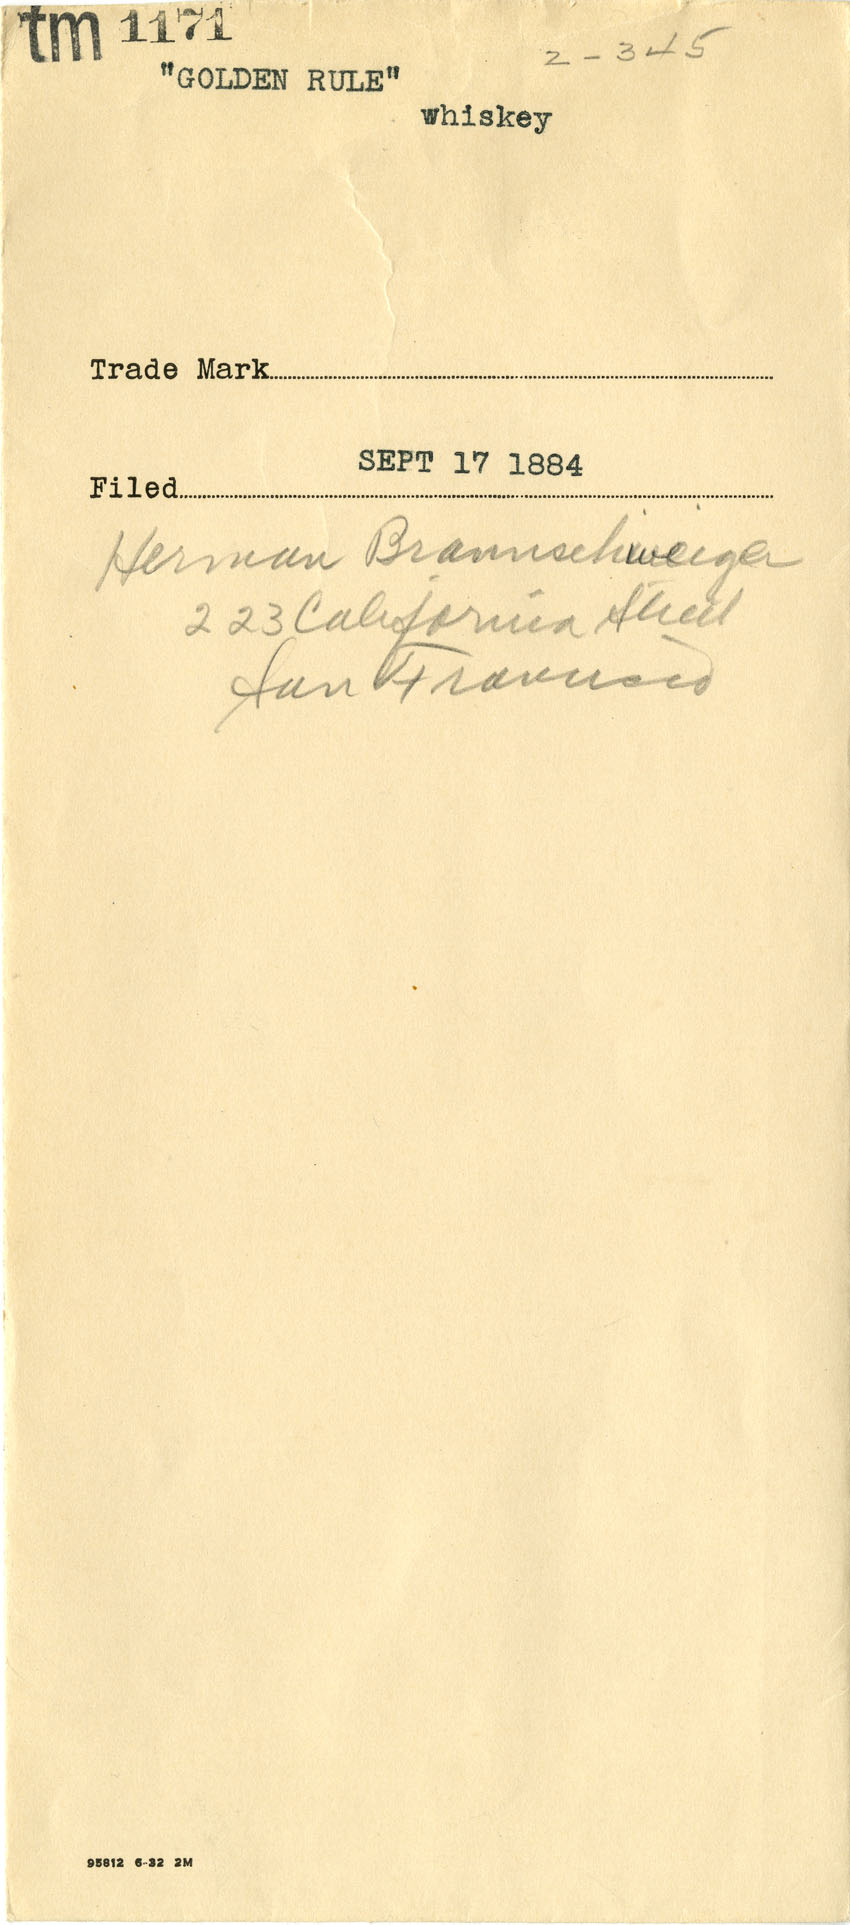 tm 1171
2-345
"GOLDEN RULE"
whiskey
Trade Mark
SEPT 17 1884
Filed
Herman Braunschweiger
223 California Street
San Francisco
95812 6-32 2M